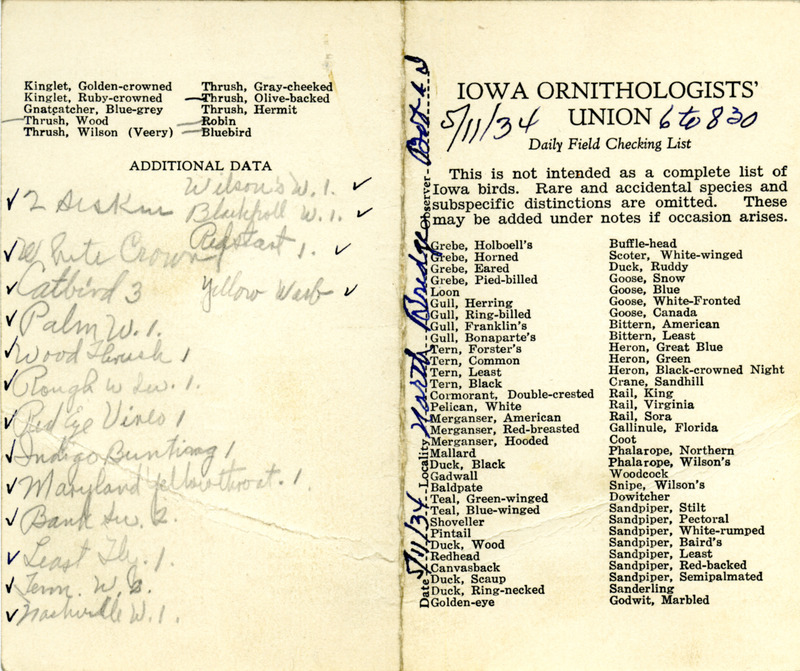 Kinglet, Golden-crowned
Kinglet, Ruby-crowned
Gnatcatcher, Blue-grey
Thrush, Wood
Thrush, Wilson (Veery)
Thrush, Gray-cheeked
Thrush, Olive-backed
Thrush, Hermit
Robin
Bluebird
ADDITIONAL DATA
Wilson's W. 1.
2 Siskin
Blackpoll W. 1.
Redstart 1.
White Crown
Catbird 3
Yellow Warb
Palm W. 1.
Wood Thrush 1
Rough W Sw. 1.
Red Eye Vireo 1
Indigo Bunting 1
Maryland Yellowthroat. 1.
Bank Sw. 2.
Least Fly. 1.
Tenn. W. 2.
Nashville W. 1.
Date 5/11/34 Locality North Bridge Observer
IOWA ORNITHOLOGISTS'
UNION 6 to 830
5/11/34
Daily Field Checking List
This is not intended as a complete list of
Iowa birds. Rare and accidental species and
subspecific distinctions are omitted. These
may be added under notes if occasion arises.
Grebe, Holboell's
Grebe, Horned
Grebe, Eared
Grebe, Pied-billed
Loon
Gull, Herring
Gull, Ring-billed
Gull, Franklin's
Gull, Bonaparte's
Tern, Forster's
Tern, Common
Tern, Least
Tern, Black
Cormorant, Double-crested
Pelican, White
Merganser, American
Merganser, Red-breasted
Merganser, Hooded
Mallard
Duck, Black
Gadwall
Baldpate
Teal, Green-winged
Teal, Blue-winged
Shoveller
Pintail
Duck, Wood
Redhead
Canvasback
Duck, Scaup
Duck, Ring-necked
Golden-eye
Buffle-head
Scoter, White-winged
Duck, Ruddy
Goose, Snow
Goose, Blue
Goose, White-Fronted
Goose, Canada
Bittern, American
Bittern, Least
Heron, Great Blue
Heron, Green
Heron, Black-crowned Night
Crane, Sandhill
Rail, King
Rail, Virginia
Rail, Sora
Gallinule, Florida
Coot
Phalarope, Northern
Phalarope, Wilson's
Woodcock
Snipe, Wilson's
Dowitcher
Sandpiper, Stilt
Sandpiper, Pectoral
Sandpiper, White-rumped
Sandpiper, Baird's
Sandpiper, Least
Sandpiper, Red-backed
Sandpiper, Semipalmated
Sanderling
Godwit, Marbled